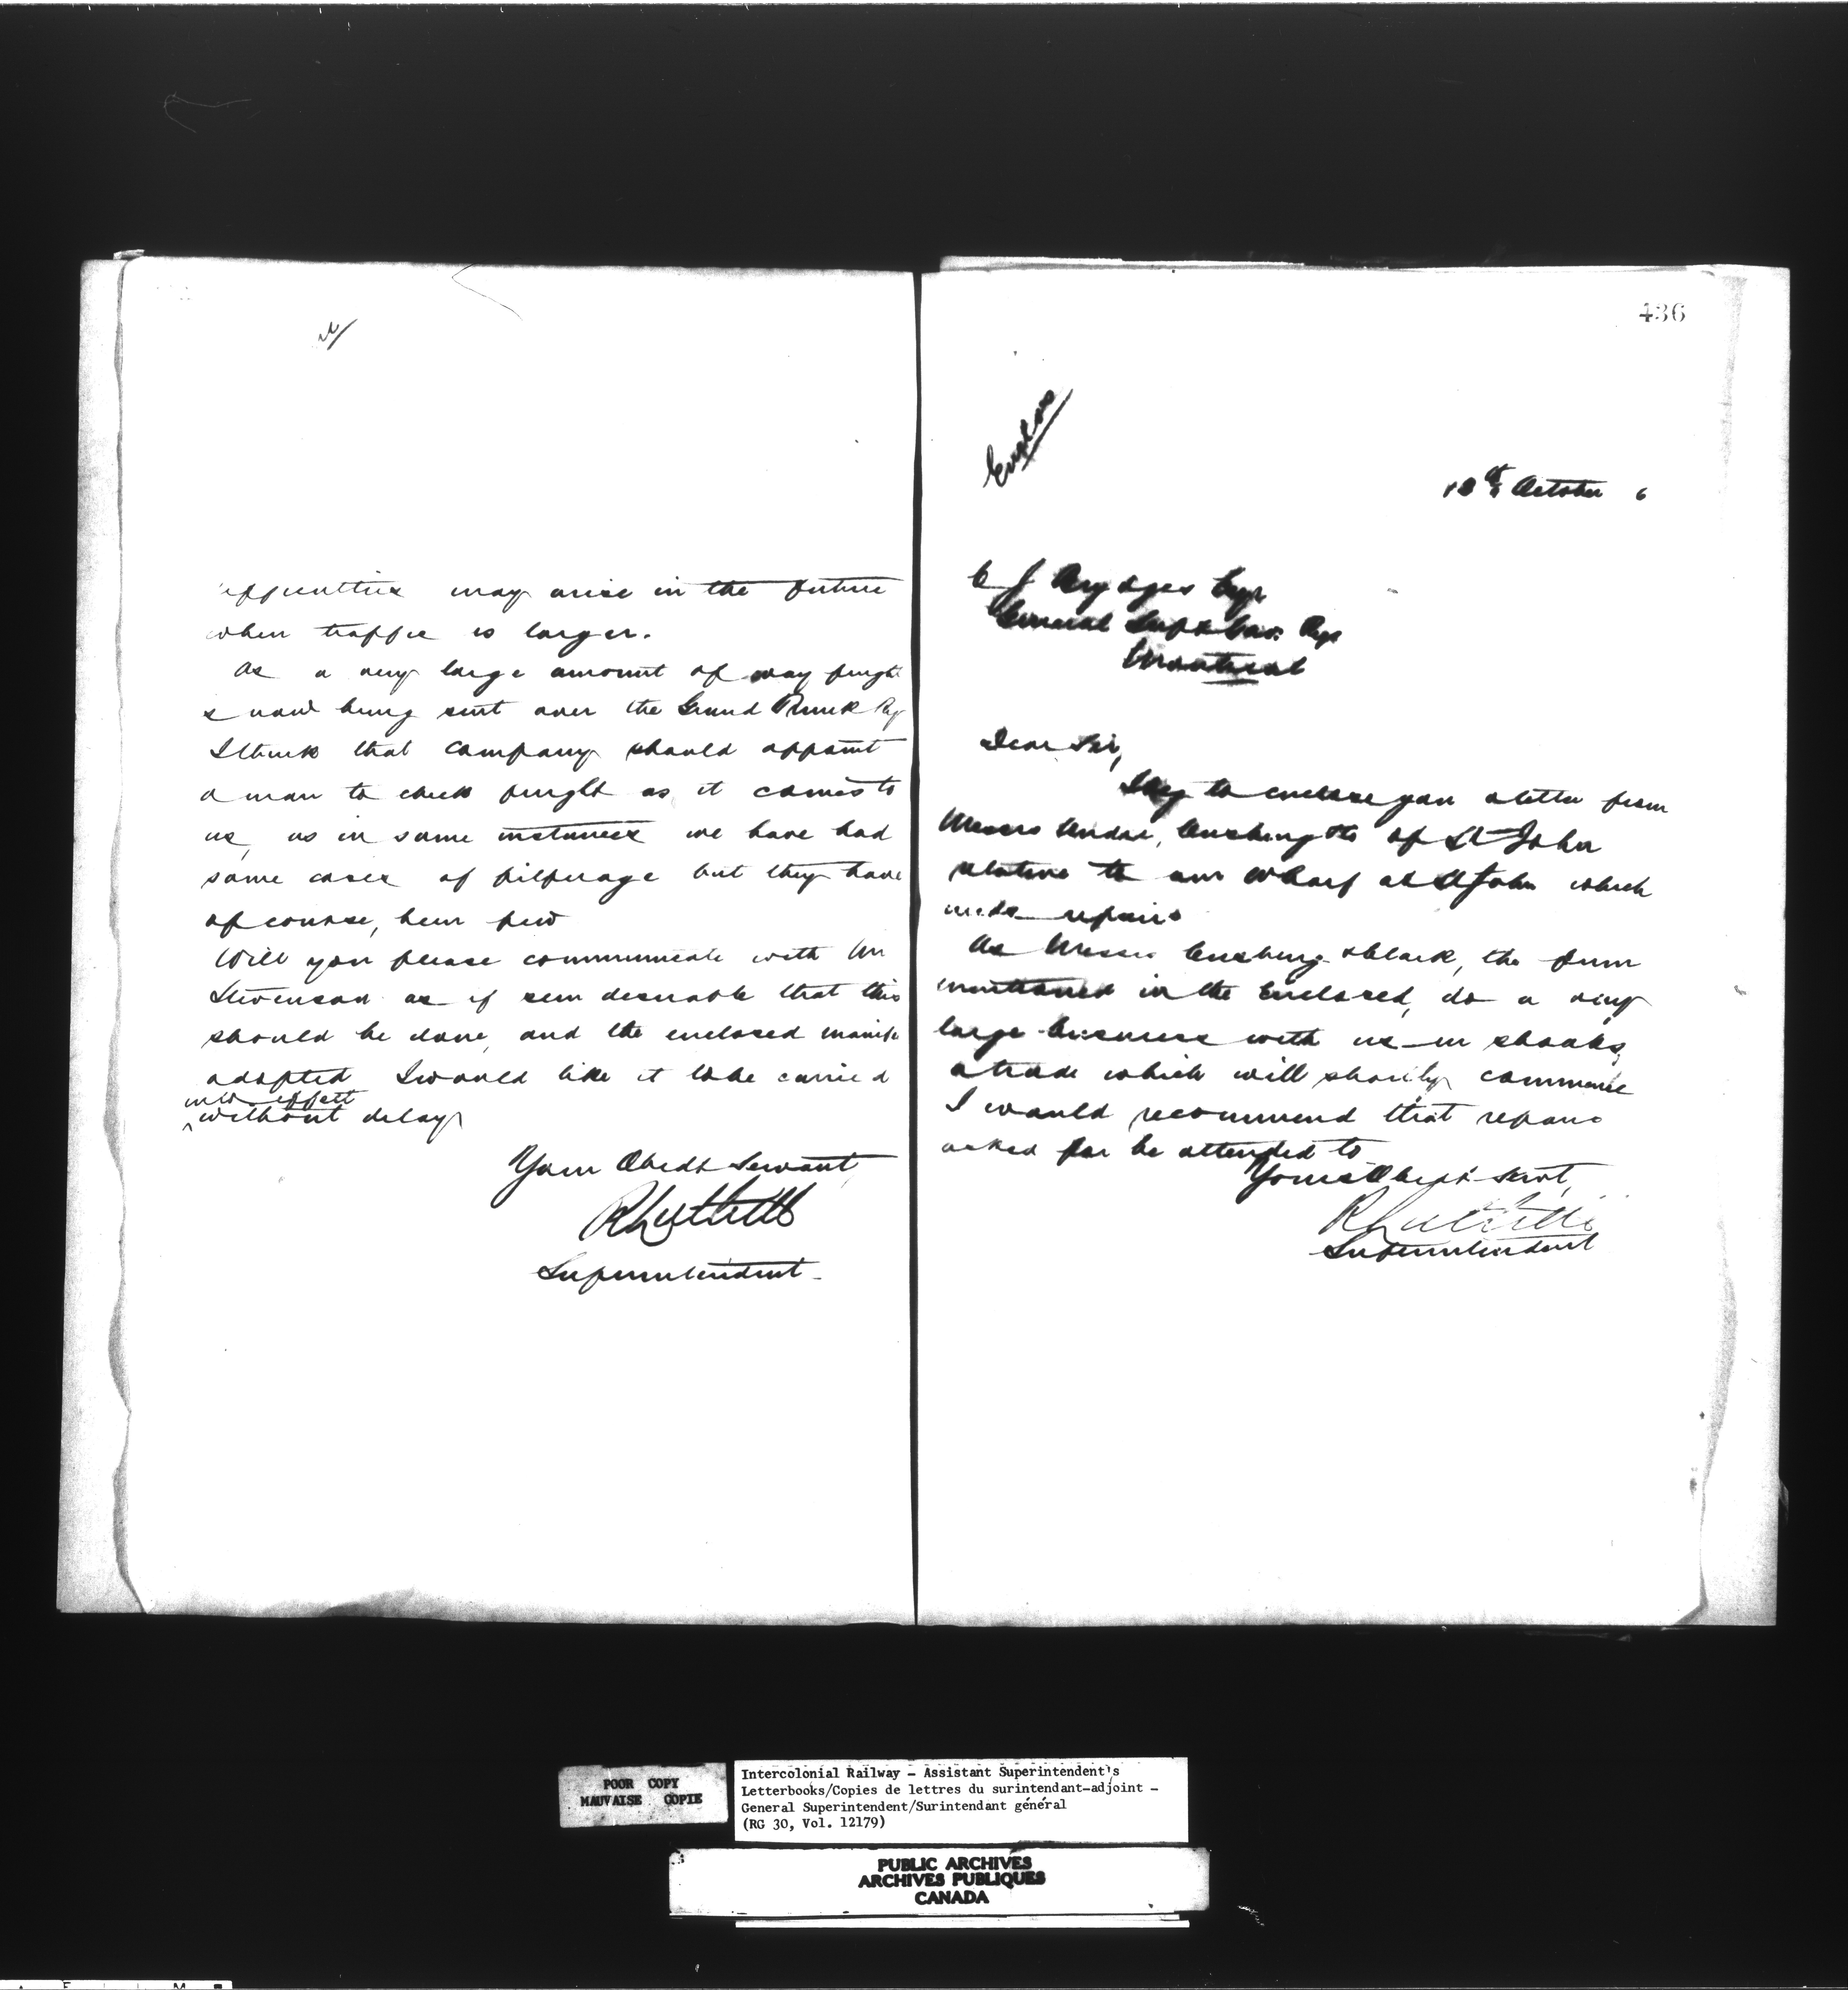 2/
difficulties may arise in the future
when traffic is larger.
As a very large amount of way freight
is now being sent over the Grand Trunk Ry
I think that Company should appoint
a man to check freight as it comes to
us, as in some instances we have had
some cases of pilferage but they have
of course, been few
Will you please communicate with Mr
Stevenson as if seem desirable that this
should be done, and the enclosed manife
adopted I would like it to be carried
into effect
^ without delay
Your Obedt Servant
R Luttrell
Superintendent
436
Enclos
10th October 6
C J Brydges Esqr
General Supt Gov. Rys
Montreal
Dear Sir,
I beg to enclose you a letter from
Messrs Andre, Cushing & Co of St John
relative to our Wharf at St John which
needs repairs
As Messrs Cushing & Clark, the firm
mentioned in the Enclosed, do a very
large business with us in shooks,
a trade which will shortly commence
I would recommend that repairs
asked for be attended to
Yours Obedt Servt,
R Luttrell
Superintendent
POOR COPY
MAUVAISE COPIE
Intercolonial Railway - Assistant Superintendent's
Letterbooks/Copies de lettres du surintendant-adjoint -
General Superintendent/Surintendant général
(RG 30, Vol. 12179)
PUBLIC ARCHIVES
ARCHIVES PUBLIQUES
CANADA